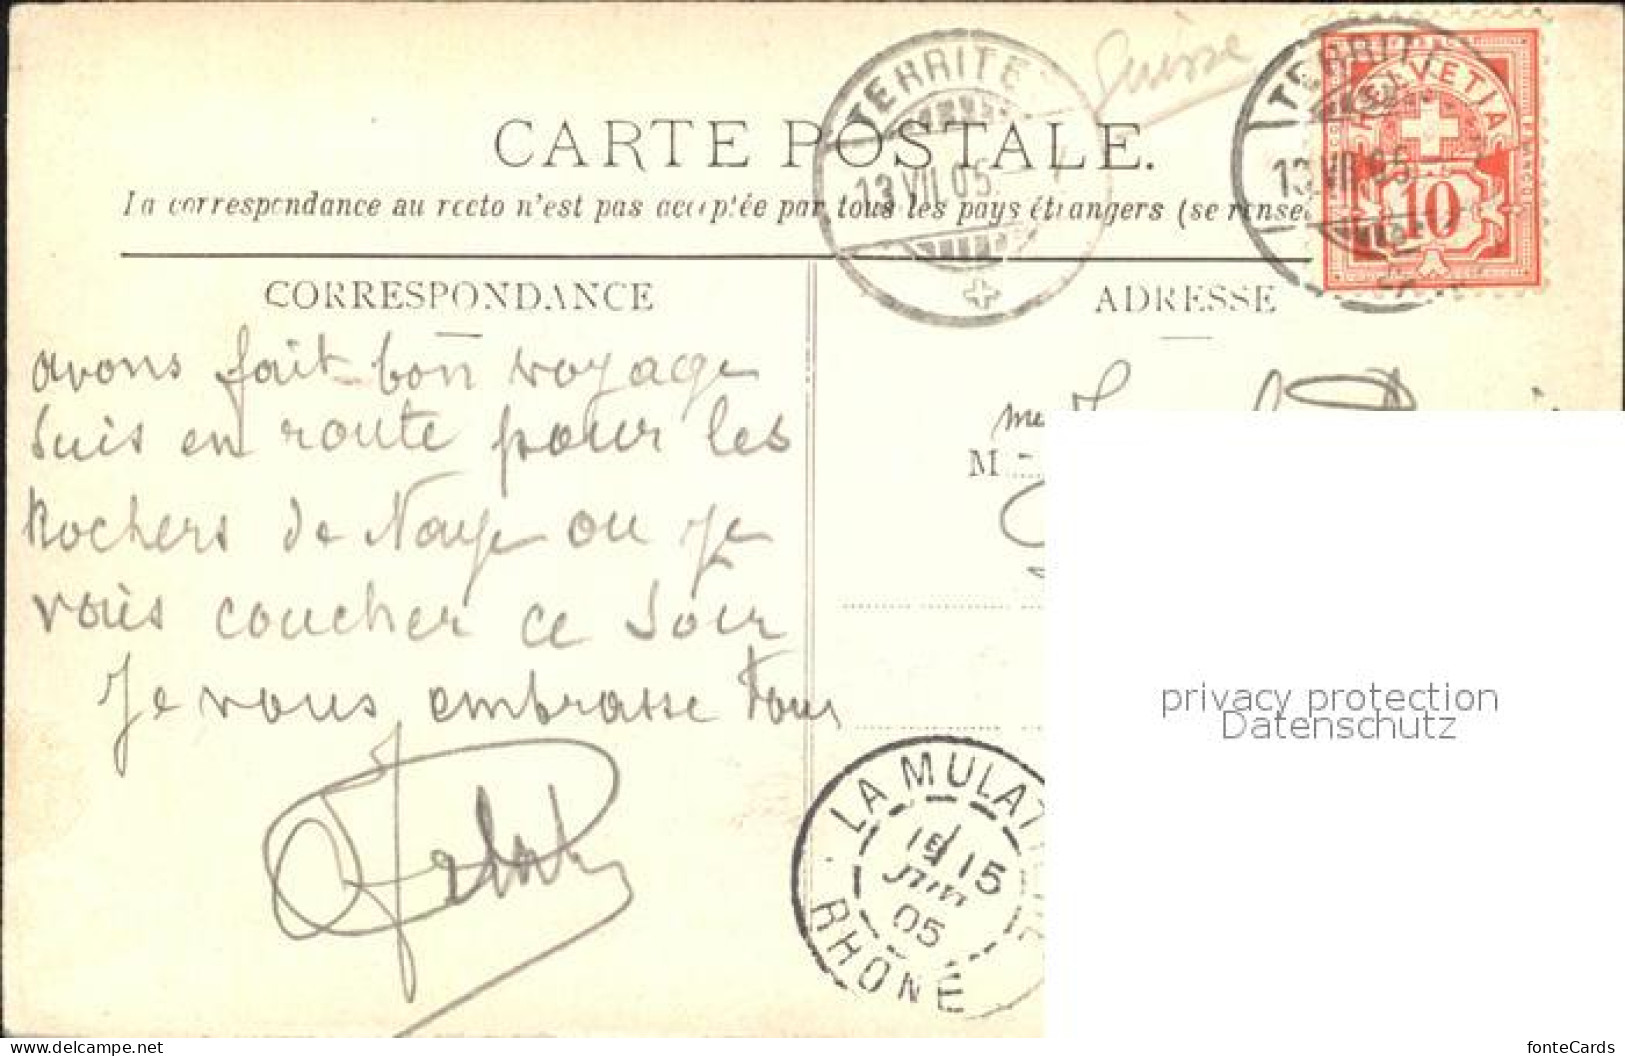 Suisse
TERRITET
13.VII.05.
TERRITET
13.VII.05
HELVETIA
10
CARTE POSTALE.
La correspondance au recto n'est pas acceptée par tous les pays étrangers (se rensei
CORRESPONDANCE
ADRESSE
avons fait bon voyage
suis en route pour les
Rochers de Naye ou je
vais coucher ce soir
Je vous embrasse tous
M
LA MULAT
15
05
RHÔNE
privacy protection
Datenschutz
www.delcampe.net
fonteCards